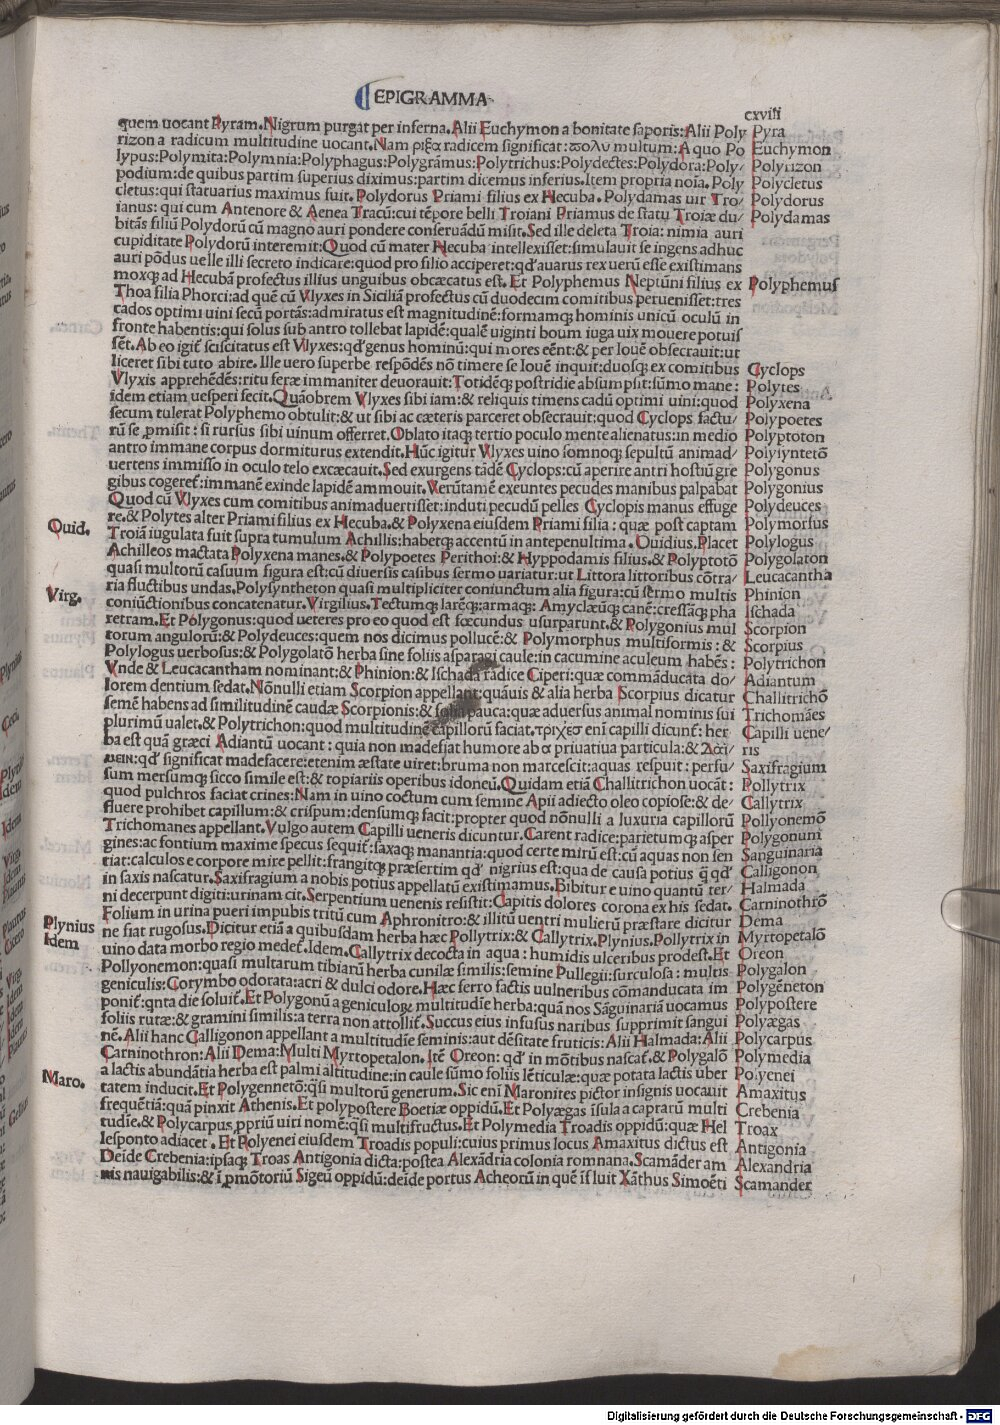 EPIGRAMMA
cxviii
quem uocant Pyram.Nigrum purgat per inferna.Alii Euchymon a bonitate saporis:Alii Poly
rizon a radicum multitudine uocant.Nam ριξα radicem significat:πολυ multum:A quo Po
lypus:Polymita:Polymnia:Polyphagus:Polygrāmus:Polytrichus:Polydectes:Polydora:Poly/
podium:de quibus partim superius diximus:partim dicemus inferius.Item propria noīa.Poly
cletus:qui statuarius maximus fuit.Polydorus Priami filius ex Hecuba.Polydamas uir Tro/
ianus:qui cum Antenore & Aenea Tracū:cui tēpore belli Troiani Priamus de statu Troiæ du/
bitās filiū Polydorū cū magno auri pondere conseruādū misit.Sed ille deleta Troia:nimia auri
cupiditate Polydorū interemit:Quod cū mater Hecuba intellexisset:simulauit se ingens adhuc
auri pōdus uelle illi secreto indicare:quod pro filio acciperet:qd' auarus rex uerū esse existimans
moxq; ad Hecubā profectus illius unguibus obcæcatus est.Et Polyphemus Neptūni filius ex
Thoa filia Phorci:ad quē cū Vlyxes in Siciliā profectus cū duodecim comitibus peruenisset:tres
cados optimi uini secū portās:admiratus est magnitudinē:formamq; hominis unicū oculū in
fronte habentis:qui solus sub antro tollebat lapidē:qualē uiginti boum iuga uix mouere potuis
sēt.Ab eo igit̄ sciscitatus est Vlyxes:qd' genus hominū:qui mores eēnt:& per Iouē obsecrauit:ut
liceret sibi tuto abire.Ille uero superbe respōdēs nō timere se Iouē inquit:duosq; ex comitibus
Vlyxis apprehēdēs:ritu feræ immaniter deuorauit:Totidēq; postridie absumpsit:sūmo mane:
idem etiam uesperi fecit.Quāobrem Vlyxes sibi iam:& reliquis timens cadū optimi uini:quod
secum tulerat Polyphemo obtulit:& ut sibi ac cæteris parceret obsecrauit:quod Cyclops factu/
rū se ꝓmisit:si rursus sibi uinum offerret.Oblato itaq; tertio poculo mente alienatus:in medio
antro immane corpus dormiturus extendit.Hūc igitur Vlyxes uino somnoq; sepultū animad/
uertens immisso in oculo telo excæcauit.Sed exurgens tādē Cyclops:cū aperire antri hostiū gre
gibus cogeret̄:immanē exinde lapidē ammouit.Verūtamē exeuntes pecudes manibus palpabat
Quod cū Vlyxes cum comitibus animaduertisset:induti pecudū pelles Cyclopis manus effuge
re.& Polytes alter Priami filius ex Hecuba.& Polyxena eiusdem Priami filia:quæ post captam
Troiā iugulata fuit supra tumulum Achillis:habetq; accentū in antepenultima.Ouidius.Placet
Achilleos mactata Polyxena manes.& Polypoetes Perithoi:& Hyppodamis filius.& Polyptotō
quasi multorū casuum figura est:cū diuersis casibus sermo uariatur:ut Littora littoribus cōtra/
ria fluctibus undas.Polysyntheton quasi multipliciter coniunctum alia figura:cū sermo multis
coniūctionibus concatenatur.Virgilius.Tectumq; larēq;:armaq;:Amyclæūq; canē:cressāq; pha
retram.Et Polygonus:quod ueteres pro eo quod est fœcundus usurparunt.& Polygonius mul
torum angulorū:& Polydeuces:quem nos dicimus pollucē:& Polymorphus multiformis:&
Polylogus uerbosus:& Polygolatō herba sine foliis asparagi caule:in cacumine aculeum habēs:
Vnde & Leucacantham nominant:& Phinion:& Ischada radice Ciperi:quæ commāducata do/
lorem dentium sedat.Nōnulli etiam Scorpion appellant:quāuis & alia herba Scorpius dicatur
semē habens ad similitudinē caudæ Scorpionis:& folia pauca:quæ aduersus animal nominis sui
plurimū ualet.& Polytrichon:quod multitudinē capillorū faciat.τριχεσ enī capilli dicunt̄:her
ba est quā græci Adiantū uocant:quia non madesiat humore ab α priuatiua particula:&
qd' significat madefacere:etenim æstate uiret:bruma non marcescit:aquas respuit:perfu/
sum mersumq; sicco simile est:& topiariis operibus idoneū.Quidam etiā Challitrichon uocāt:
quod pulchros faciat crines:Nam in uino coctum cum semine Apii adiecto oleo copiose:& de/
fluere prohibet capillum:& crispum:densumq; facit:propter quod nōnulli a luxuria capillorū
Trichomanes appellant.Vulgo autem Capilli ueneris dicuntur.Carent radice:parietumq; asper
gines:ac fontium maxime specus sequit̄:saxaq; manantia:quod certe mirū est:cū aquas non sen
tiat:calculos e corpore mire pellit:frangitq; præsertim qd' nigrius est:qua de causa potius q̄ qd'
in saxis nascatur.Saxifragium a nobis potius appellatū existimamus.Bibitur e uino quantū ter/
ni decerpunt digiti:urinam cit.Serpentium uenenis resistit:Capitis dolores corona ex his sedat.
Folium in urina pueri impubis tritū cum Aphronitro:& illitū uentri mulierū præstare dicitur
ne fiat rugosus.Dicitur etiā a quibusdam herba hæc Pollytrix:& Callytrix.Plynius.Pollytrix in
uino data morbo regio medet̄.Idem.Callytrix decocta in aqua:humidis ulceribus prodest.Et
Pollyonemon:quasi multarum tibiarū herba cunilæ similis:semine Pullegii:surculosa:multis
geniculis:Corymbo odorata:acri & dulci odore.Hæc ferro factis uulneribus cōmanducata im
ponit̄:qnta die soluit̄.Et Polygonū a geniculorꝝ multitudīe herba:quā nos Sāguinariā uocamus
foliis rutæ:& gramini similis:a terra non attollit̄.Succus eius infusus naribus supprimit sangui
nē.Alii hanc Calligonon appellant a multitudīe seminis:aut dēsitate fruticis:Alii Halmada:Alii
Carninothron:Alii Dema:Multi Myrtopetalon.Itē Oreon:qd' in mōtibus nascat̄.& Polygalō
a lactis abundātia herba est palmi altitudine:in caule sūmo foliis lēticulæ:quæ potata lactis uber
tatem inducit.Et Polygennetō:q̄si multorū generum.Sic enī Maronites pictor insignis uocauit
frequētiā:quā pinxit Athenis.Et polypostere Boetiæ oppidū.Et Polyægas īsula a caprarū multi
tudīe.& Polycarpus ꝓpriū uiri nomē:q̄si multifructus.Et Polymedia Troadis oppidū:quæ Hel
lesponto adiacet.Et Polyenei eiusdem Troadis populi:cuius primus locus Amaxitus dictus est
Deide Crebenia:ipsaq; Troas Antigonia dicta:postea Alexādria colonia romnana.Scamāder am
nis nauigabilis:& ī ꝓmōtoriū Sigeū oppidū:deīde portus Acheorū in quē īfluit Xāthus Simoēti
Pyra
Euchymon
Polyrizon
Polycletus
Polydorus
Polydamas
Polyphemus
Cyclops
Polytes
Polyxena
Polypoetes
Polyptoton
Polyiyntetō
Polygonus
Polygonius
Polydeuces
Polymorfus
Polylogus
Polygolaton
Leucacantha
Phinion
Ischada
Scorpion
Scorpius
Polytrichon
Adiantum
Challitrichō
Trichomāes
Capilli uene/
ris
Saxifragium
Pollytrix
Callytrix
Pollyonemō
Polygonum
Sanguinaria
Calligonon
Halmada
Carninothrō
Dema
Myrtopetalō
Oreon
Polygalon
Polygēneton
Polypostere
Polyægas
Polycarpus
Polymedia
Polyenei
Amaxitus
Crebenia
Troax
Antigonia
Alexandria
Scamander
Ouid.
Virg.
Plynius
Idem
Maro.
Digitalisierung gefördert durch die Deutsche Forschungsgemeinschaft - DFG